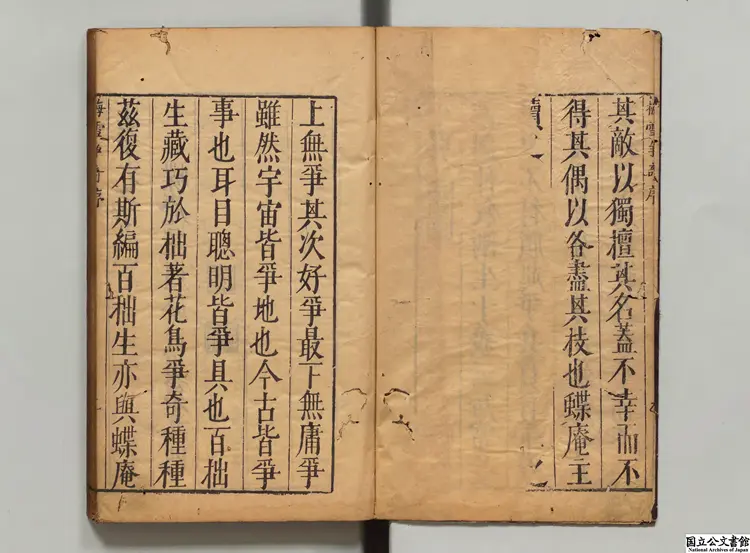 其敵以獨擅其名蓋不幸而不
得其偶以各盡其枝也蝶庵主
讀之
上無爭其次好爭最下無庸爭
雖然宇宙皆爭地也今古皆爭
事也耳目聰明皆爭具也百拙
生藏巧於拙著花鳥爭奇種種
茲復有斯編百拙生亦與蝶庵
国立公文書館
National Archives of Japan